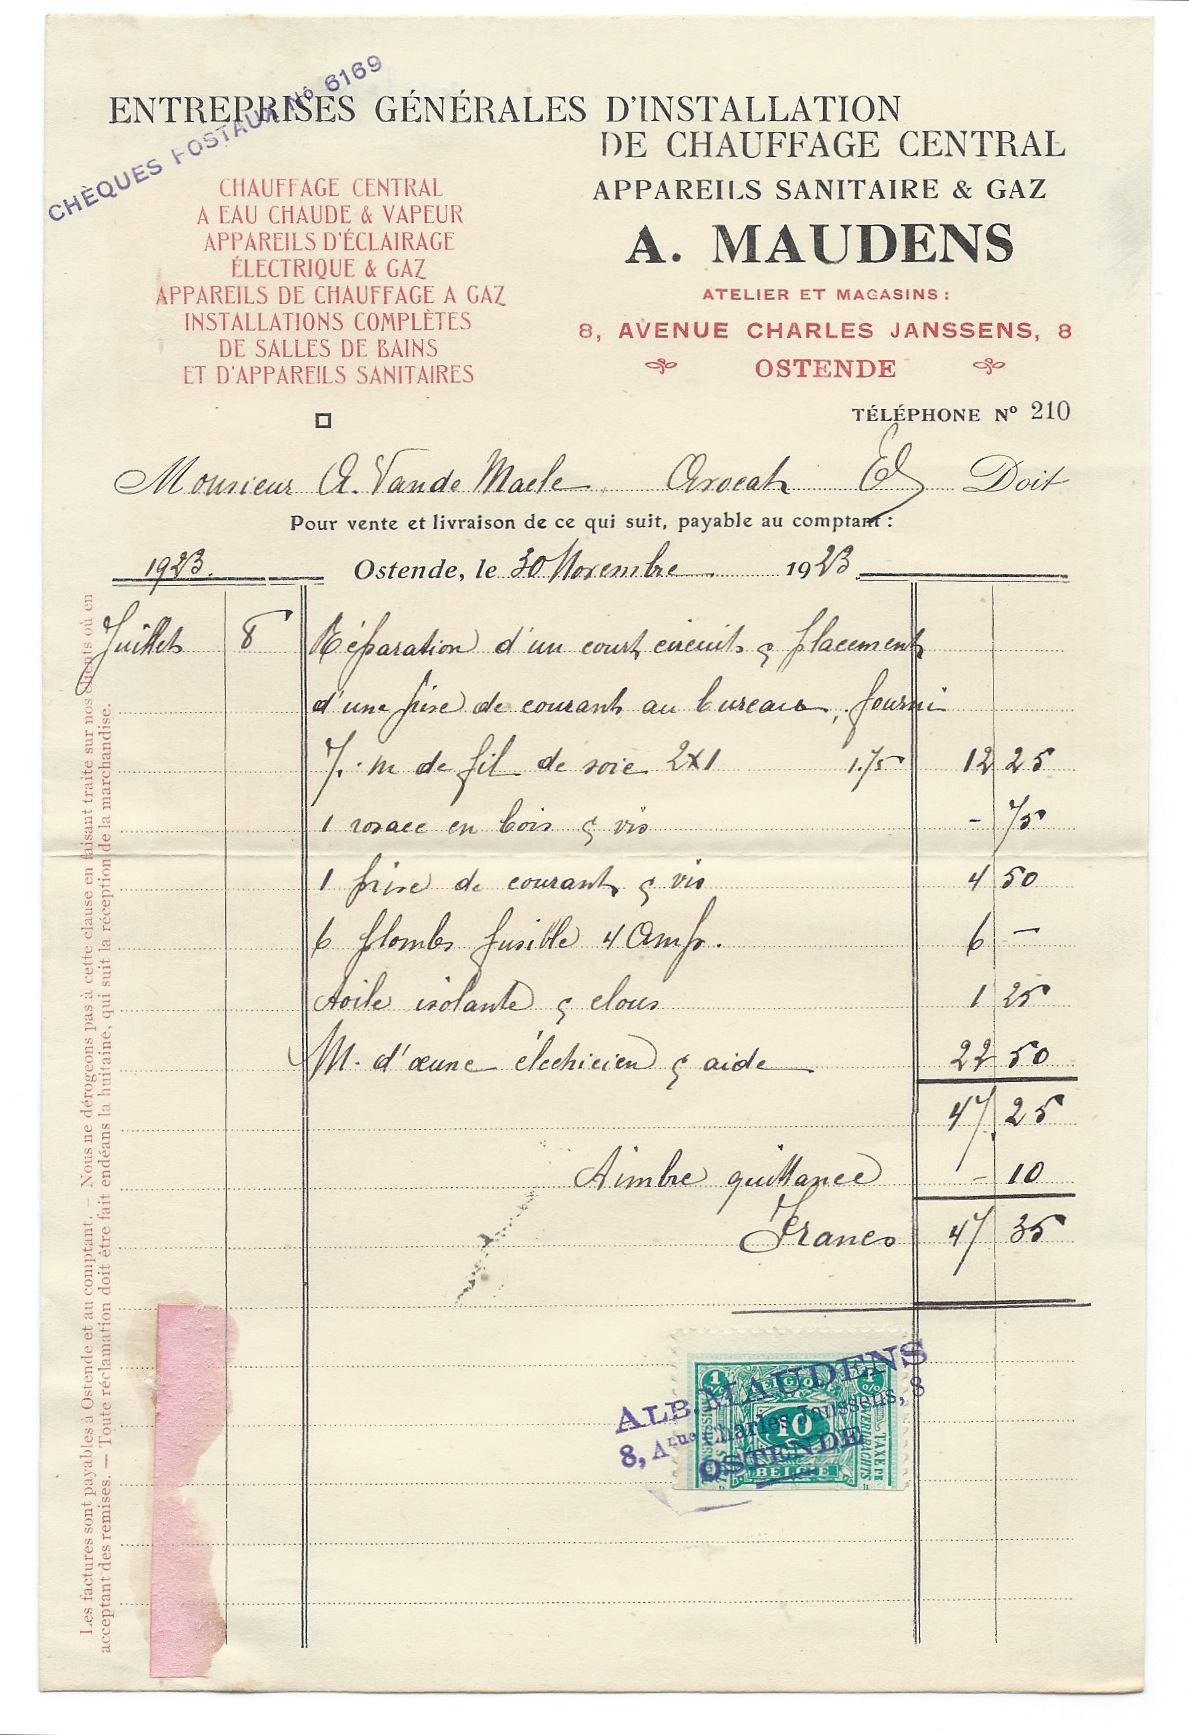 CHÈQUES POSTAUX No 6169
ENTREPRISES GÉNÉRALES D'INSTALLATION
DE CHAUFFAGE CENTRAL
APPAREILS SANITAIRE & GAZ
A. MAUDENS
ATELIER ET MAGASINS :
8, AVENUE CHARLES JANSSENS, 8
OSTENDE
TÉLÉPHONE No 210
CHAUFFAGE CENTRAL
A EAU CHAUDE & VAPEUR
APPAREILS D'ÉCLAIRAGE
ÉLECTRIQUE & GAZ
APPAREILS DE CHAUFFAGE A GAZ
INSTALLATIONS COMPLÈTES
DE SALLES DE BAINS
ET D'APPAREILS SANITAIRES
Monsieur A. Vande Maele Avocat Doit
Pour vente et livraison de ce qui suit, payable au comptant :
1923. Ostende, le 30 Novembre 1923
Juillet 8 Réparation d'un court circuit & placement
d'une prise de courant au bureau, fourni
7. m de fil de soie 2x1 1.75 12 25
1 rosace en bois & vis - 75
1 prise de courant & vis 4 50
6 plombs fusible 4 Amp. 6 -
toile isolante & clous 1 25
M. d'œuvre électricien & aide 22 50
47 25
Timbre quittance - 10
Francs 47 35
Les factures sont payables à Ostende et au comptant. — Nous ne dérogeons pas à cette clause en faisant traite sur nos clients où en
acceptant des remises. — Toute réclamation doit être fait endéans la huitaine, qui suit la réception de la marchandise.
ALB. MAUDENS
8, Anue Charles Janssens, 8
OSTENDE
10
BELGIE
TAXE DE